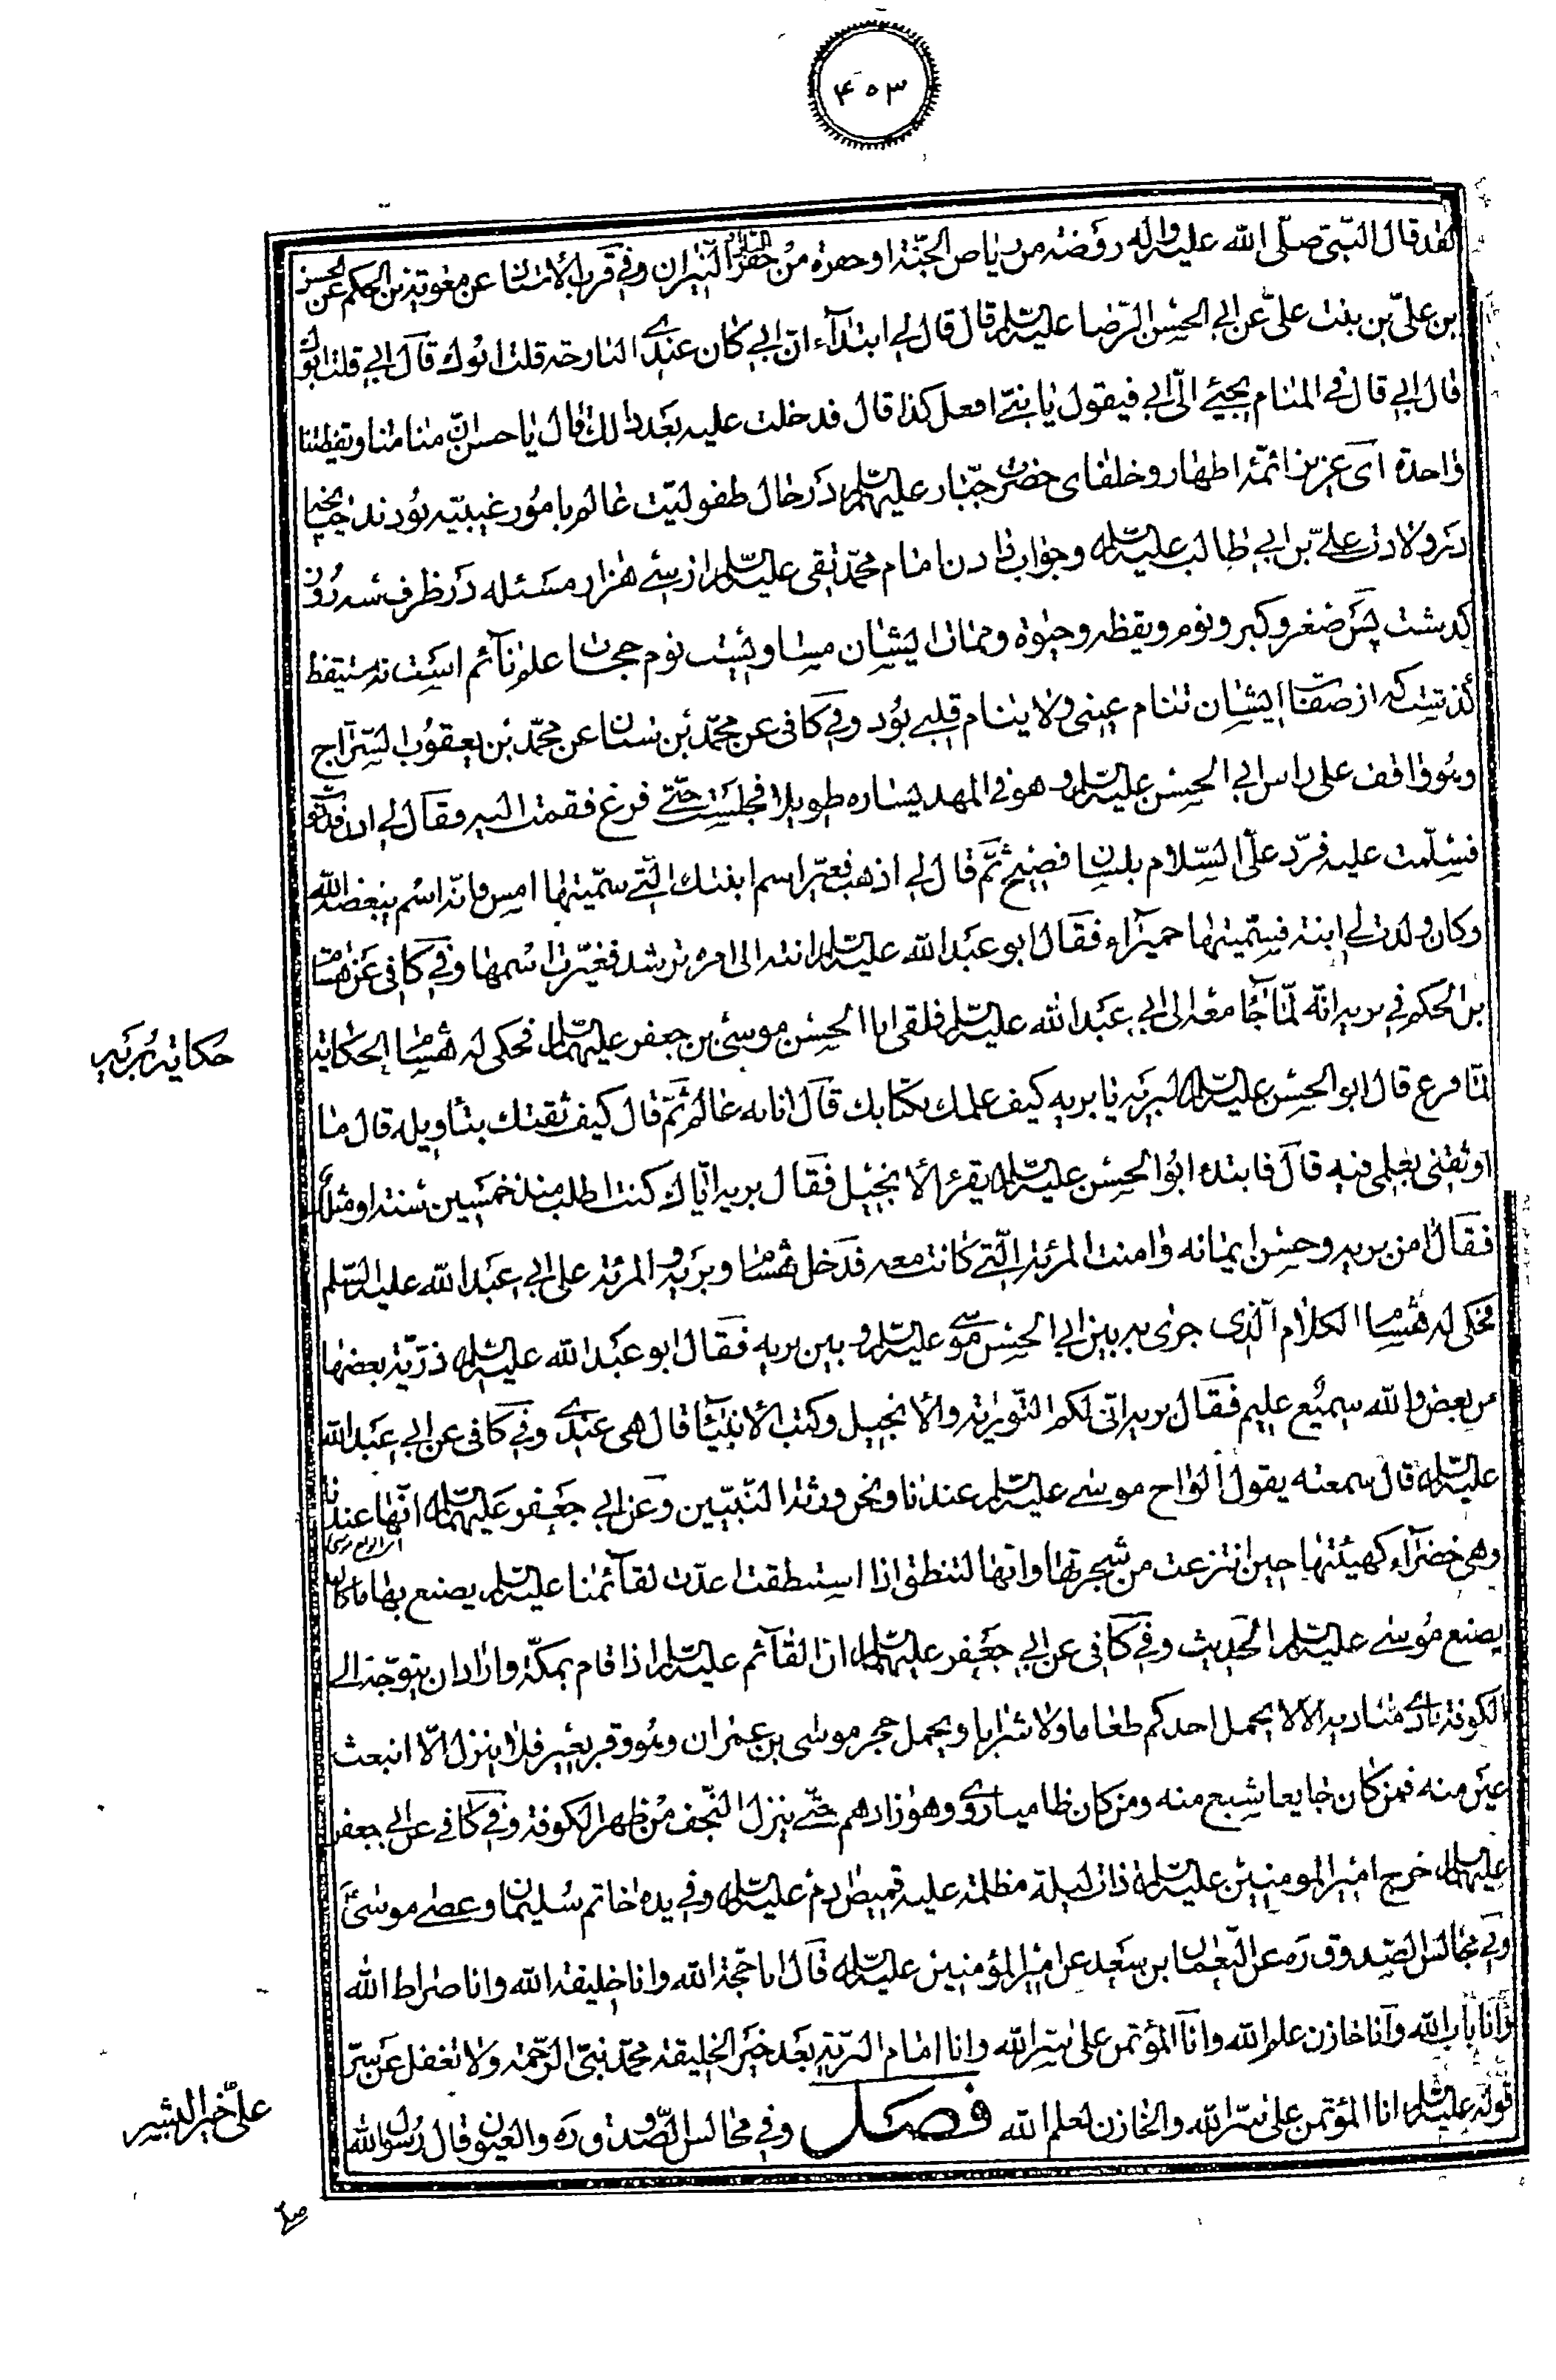 ۴۰۳
لقد قال النبی صلی الله علیه واله روضه من ریاض الجنة او حفرة من حفر النیران وفی قرب الاسناد عن معویة بن الحکم عن الحسن
بن علی بن بنت علی عن ابی الحسن الرضا علیه السلم قال قال لی ابتداء ان ابی کان عندی البارحة قلت ابوک قال ابی قلت ابوک
قال ابی قال فی المنام یجیئ الی ابی فیقول یا بنی افعل کذا قال فدخلت علیه بعد ذلک فقال یا حسن ان منامنا ویقظتنا
واحدة ای عزیز ائمه اطهار و خلفای حضرت جبار علیهم السلم در حال طفولیت عالم بامور غیبیه بودند چنانچه
در ولادت علی بن ابی طالب علیه السلم و جواب دادن امام محمد تقی علیه السلم از سی هزار مسئله در ظرف سه روز
گذشت پس صغر و کبر و نوم و یقظه و حیوة و ممات ایشان مساویست نوم حجت علم نائم است نه مستیقظ
گذشت که از صفات ایشان تنام عینی ولا ینام قلبی بود وفی کافی عن محمد بن سنان عن محمد بن یعقوب السراج
وهو واقف علی راس ابی الحسن علیه السلم وهو فی المهد یساره طویلا فجلست حتی فرغ فقمت الیه فقال لی ادن
فسلمت علیه فرد علی السلام بلسان فصیح ثم قال لی اذهب فغیر اسم ابنتک التی سمیتها امس فانه اسم یبغضه الله
وکان ولدت لی ابنة فسمیتها حمیراء فقال ابو عبدالله علیه السلم انته الی امره ترشد فغیرت اسمها وفی کافی عن هشام
بن الحکم فی بریه انه لما جاء معه الی ابی عبدالله علیه السلم فلقی ابا الحسن موسی بن جعفر علیهما السلم فحکی له هشام الحکایة
حکایة بریه
لما فرغ قال ابو الحسن علیه السلم لبریه یا بریه کیف علمک بکتابک قال انا به عالم ثم قال کیف ثقتک بتاویله قال ما
اوثقنی بعلمی فیه قال فابتدء ابو الحسن علیه السلم یقرء الانجیل فقال بریه ایاک کنت اطلب منذ خمسین سنة او مثلک
فقال امن بریه وحسن ایمانه وامنت المرئة التی کانت معه فدخل هشام وبریه والمرئة علی ابی عبدالله علیه السلم
فحکی له هشام الکلام الذی جری به بین ابی الحسن موسی علیه السلم وبین بریه فقال ابو عبدالله علیه السلم ذریة بعضها
من بعض والله سمیع علیم فقال بریه انی لکم التوریة والانجیل وکتب الانبیاء قال هی عندی وفی کافی عن ابی عبدالله
علیه السلم قال سمعته یقول الواح موسی علیه السلم عندنا ونحن ورثة النبیین وعن ابی جعفر علیهما السلم انها عندنا
وهی خضراء کهیئتها حین انتزعت من شجرتها وانها لتنطق اذا استنطقت اعدت لقائمنا علیه السلم یصنع بها ما کان
یصنع موسی علیه السلم الحدیث وفی کافی عن ابی جعفر علیهما السلم ان القائم علیه السلم اذا قام بمکة واراد ان یتوجه الی
الکوفة نادی منادیه الا لا یحمل احدکم طعاما ولا شرابا ویحمل حجر موسی بن عمران وهو وقر بعیر فلا ینزل الا انبعث
عین منه فمن کان جایعا شبع منه ومن کان ظامیا روی وهو زادهم حتی ینزل النجف من ظهر الکوفة وفی کافی عن ابی جعفر
علیهما السلم خرج امیر المومنین علیه السلم ذات لیلة مظلمة علیه قمیص ادم علیه السلم وفی یده خاتم سلیمان وعصی موسی
وفی مجالس الصدوق ره عن النعمان ابن سعید عن امیر المؤمنین علیه السلم قال انا حجة الله وانا خلیفة الله وانا صراط الله
وانا باب الله وانا خازن علم الله وانا المؤتمن علی سر الله وانا امام البریة بعد خیر الخلیقة محمد نبی الرحمة ولا تغفل عن سر
قوله علیه السلم انا المؤتمن علی سر الله والخازن لعلم الله فصل وفی مجالس الصدوق ره والعیون قال رسول الله
علی خیر البشر